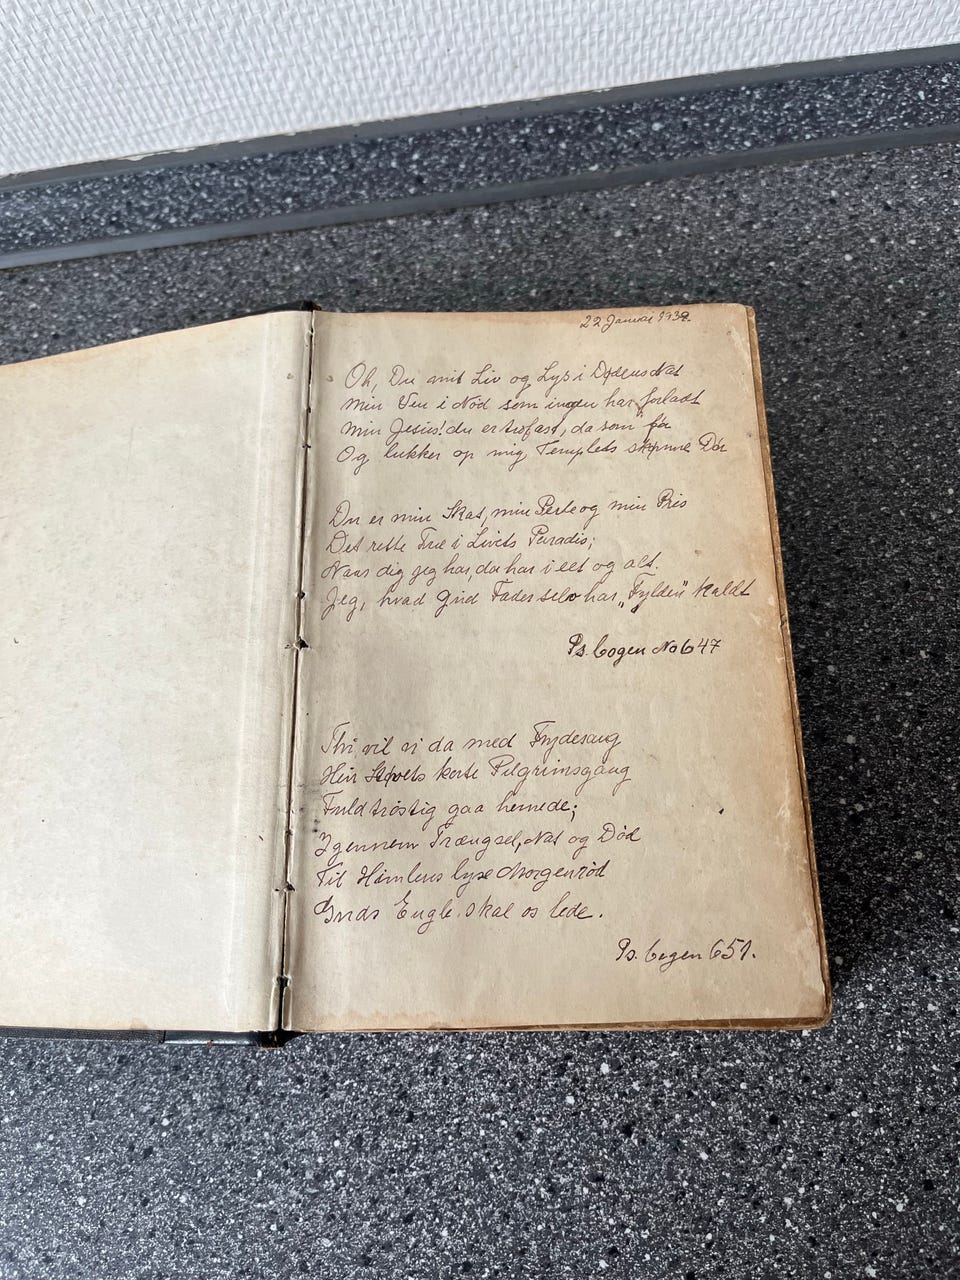 22 Januar 1939.
Oh, Du mit Liv og Lys i Dødens Nat
Min Ven i Nød som ingen har forladt
Min Jesus! du er trofast, da som før
Og lukker op mig Templets skjønne Dør
Du er min Skat, min Perle og min Pris
Det rette Træ i Livets Paradis;
Naar dig jeg har, da har i eet og alt.
Jeg, hvad Gud Fader selv har „Fylden" kaldt
Ps. bogen No 647
Thi vil vi da med Frydesang
Hen Støvets korte Pilgrimsgang
Fuld trøstig gaa hernede;
Igennem Trængsel, Nat og Død
Til Himlens lyse Morgenrød
Guds Engle skal os lede.
Ps. bogen 651.